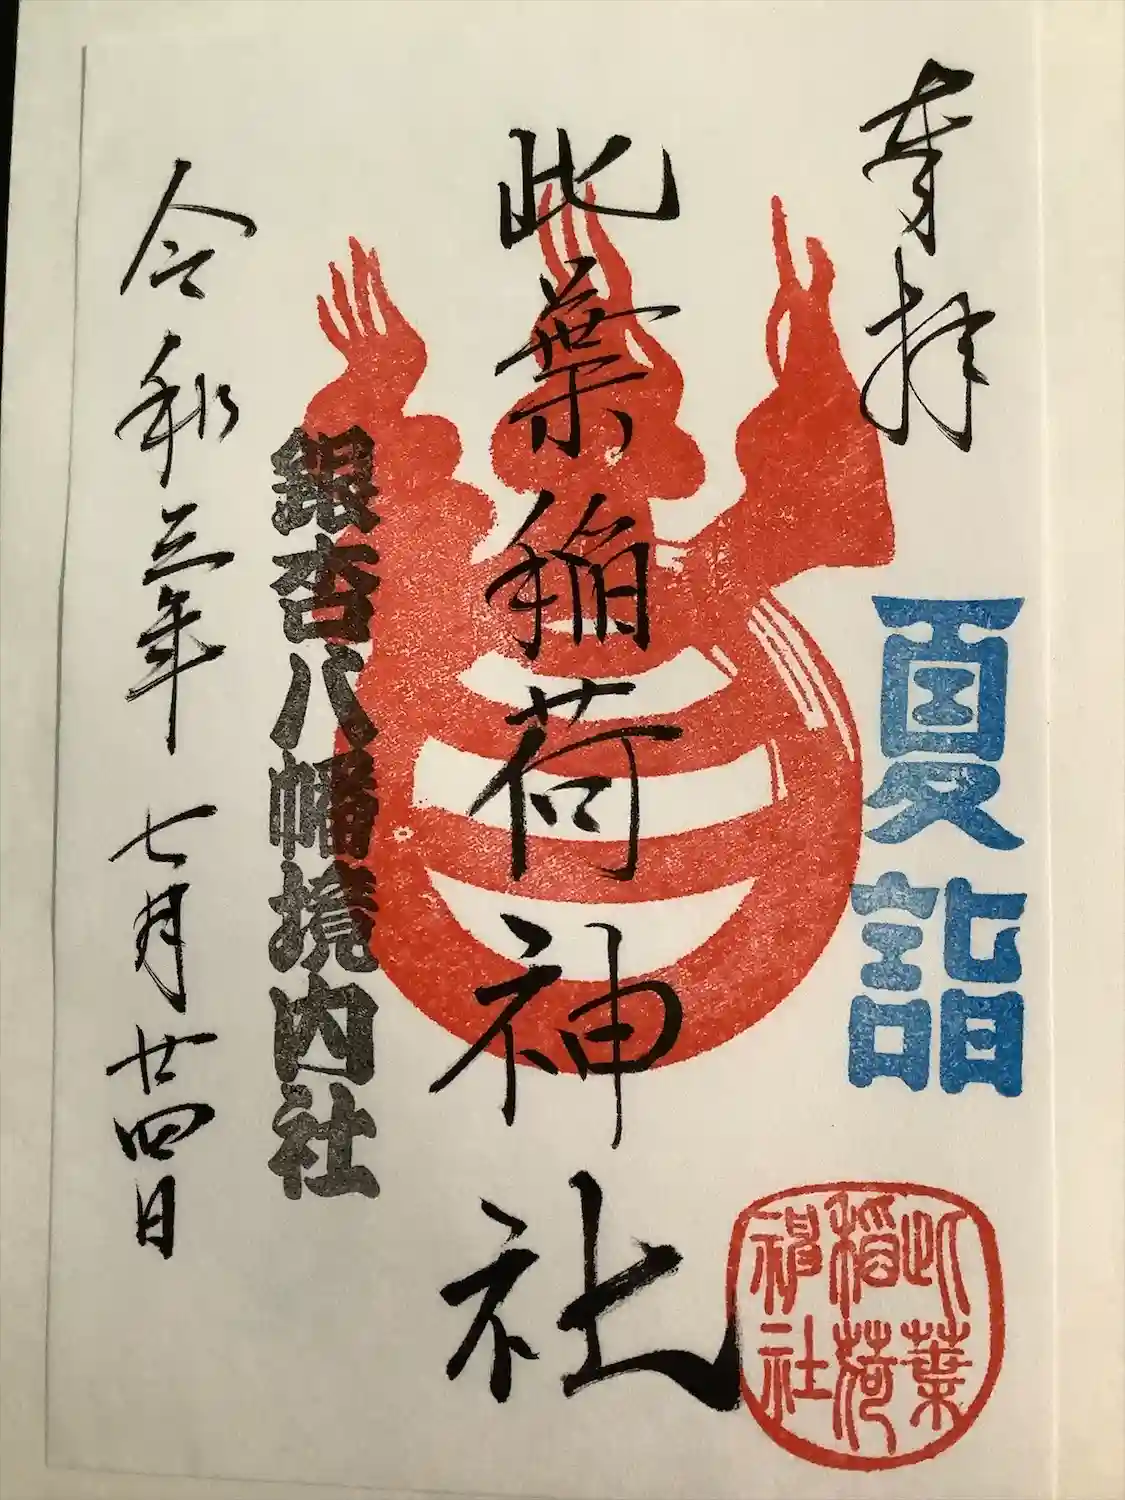 奉拝
夏詣
此葉稲荷神社
此葉
稲荷
神社
銀杏八幡境内社
令和三年七月廿四日